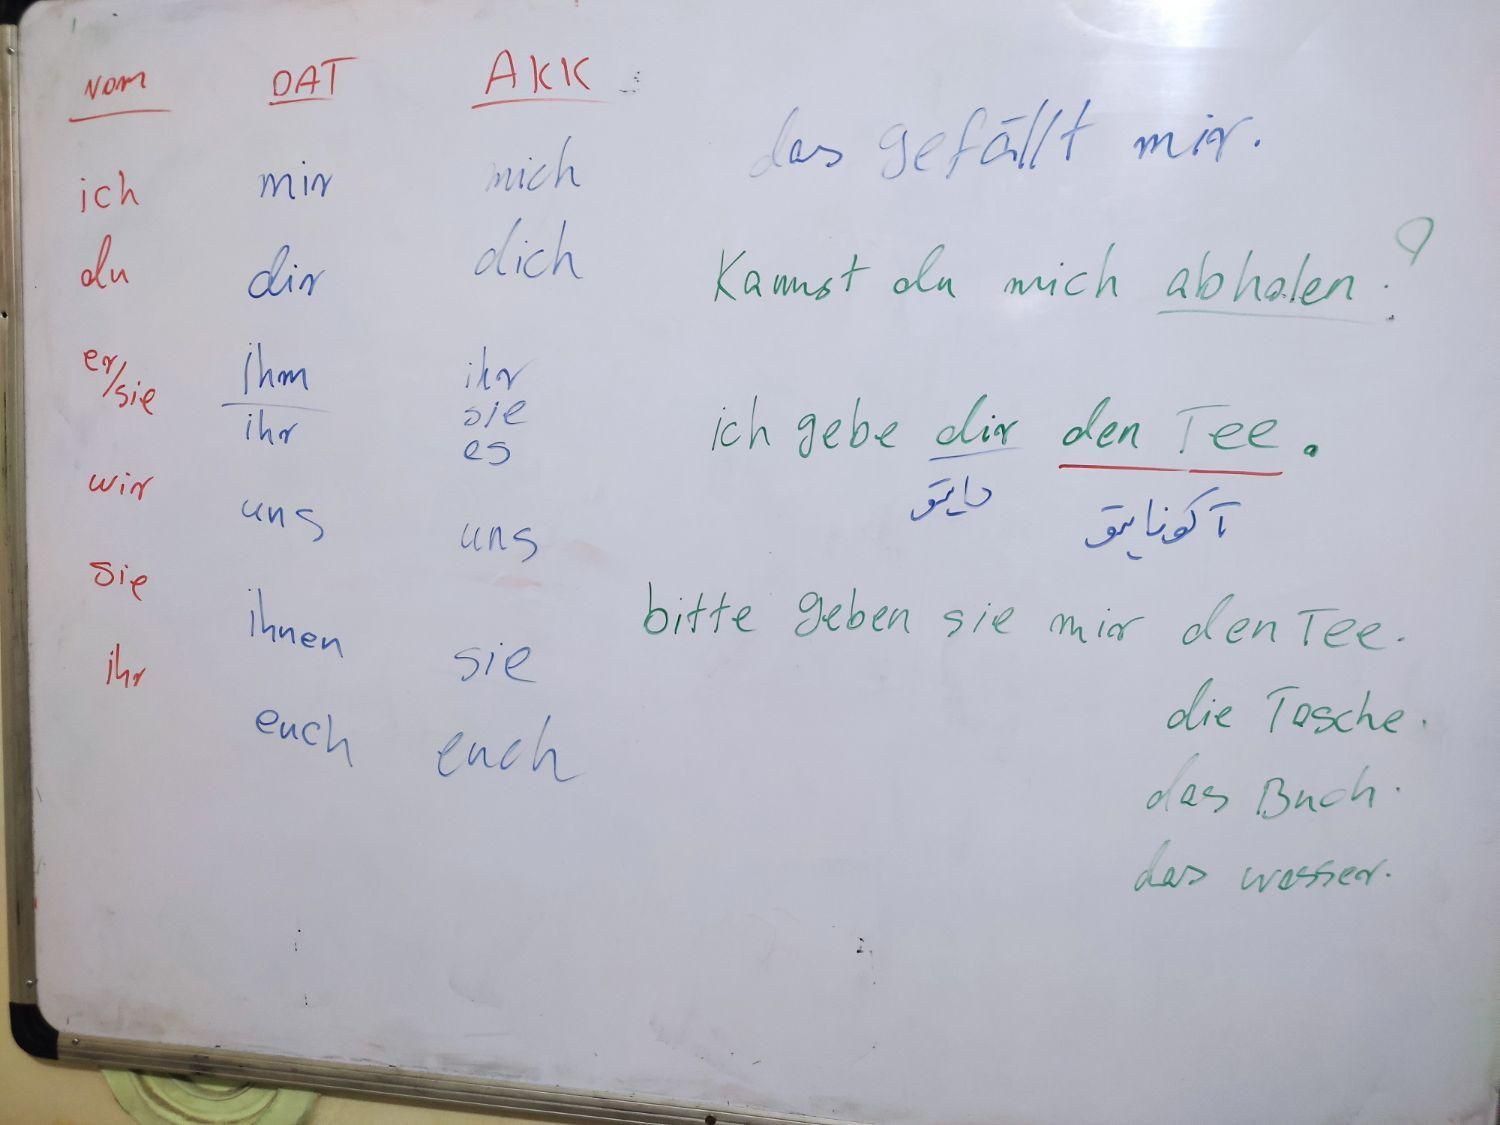 NOM DAT AKK
ich mir mich
du dir dich
er/sie ihm ihr
ihr sie
es
wir uns uns
sie ihnen sie
ihr euch euch
das gefällt mir.
Kannst du mich abholen?
ich gebe dir den Tee.
داتیو آکوزاتیو
bitte geben sie mir den Tee.
die Tasche.
das Buch.
das wasser.